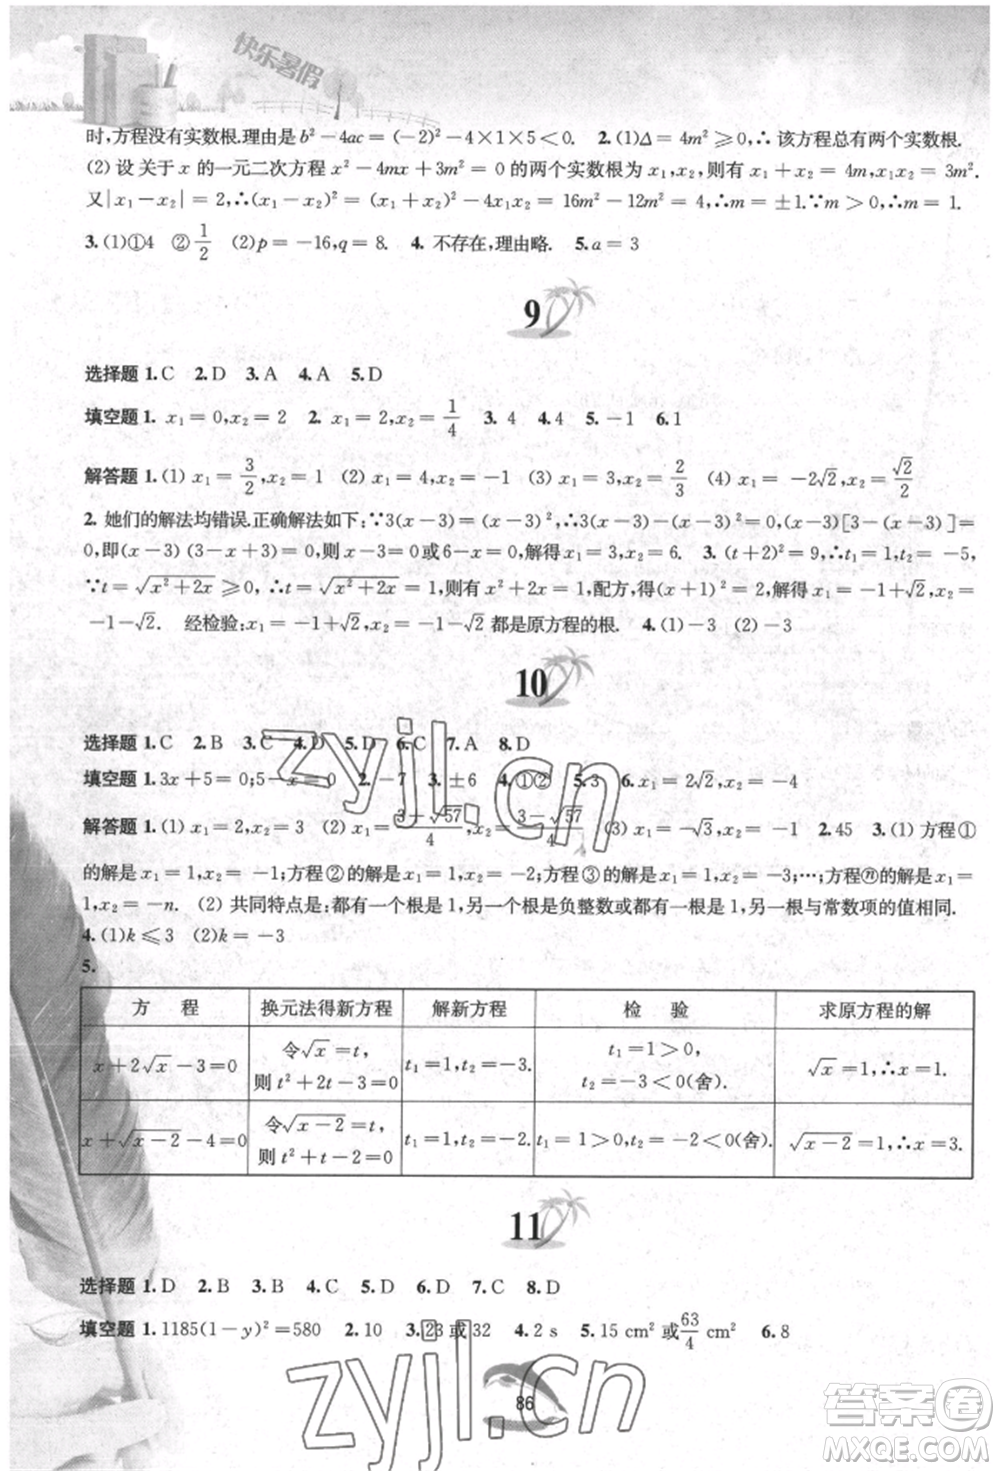 快乐暑假
时,方程没有实数根.理由是b²－4ac＝(－2)²－4×1×5＜0. 2. (1)Δ＝4m²⩾0,∴该方程总有两个实数根.
(2) 设关于 x 的一元二次方程 x²－4mx＋3m²＝0 的两个实数根为 x₁,x₂,则有 x₁＋x₂＝4m,x₁x₂＝3m².
又|x₁－x₂|＝2,∴(x₁－x₂)²＝(x₁＋x₂)²－4x₁x₂＝16m²－12m²＝4,∴m＝±1.∵m＞0,∴m＝1.
3. (1)①4 ②1/2 (2)p＝－16,q＝8. 4. 不存在,理由略. 5. a＝3
9
选择题 1. C 2. D 3. A 4. A 5. D
填空题 1. x₁＝0,x₂＝2 2. x₁＝2,x₂＝1/4 3. 4 4. 4 5. －1 6. 1
解答题 1. (1) x₁＝3/2,x₂＝1 (2) x₁＝4,x₂＝－1 (3) x₁＝3,x₂＝2/3 (4) x₁＝－2√2,x₂＝√2/2
2. 她们的解法均错误.正确解法如下:∵3(x－3)＝(x－3)²,∴3(x－3)－(x－3)²＝0,(x－3)[3－(x－3)]＝
0,即(x－3)(3－x＋3)＝0,则x－3＝0或6－x＝0,解得x₁＝3,x₂＝6. 3. (t＋2)²＝9,∴t₁＝1,t₂＝－5,
∵t＝√(x²＋2x)⩾0,∴t＝√(x²＋2x)＝1,则有x²＋2x＝1,配方,得(x＋1)²＝2,解得x₁＝－1＋√2,x₂＝
－1－√2. 经检验:x₁＝－1＋√2,x₂＝－1－√2都是原方程的根. 4. (1)－3 (2)－3
10
选择题 1. C 2. B 3. C 4. D 5. D 6. C 7. A 8. D
填空题 1. 3x＋5＝0;5－x＝0 2. －7 3. ±6 4. ①② 5. 3 6. x₁＝2√2,x₂＝－4
解答题 1. (1) x₁＝2,x₂＝3 (2) x₁＝(3＋√57)/4,x₂＝(3－√57)/4 (3) x₁＝－√3,x₂＝－1 2. 45 3. (1) 方程①
的解是x₁＝1,x₂＝－1;方程②的解是x₁＝1,x₂＝－2;方程③的解是x₁＝1,x₂＝－3;…;方程ⓝ的解是x₁＝
1,x₂＝－n. (2) 共同特点是:都有一个根是1,另一个根是负整数或都有一个根是1,另一根与常数项的值相同.
4. (1)k⩽3 (2)k＝－3
5.
方 程 换元法得新方程 解新方程 检 验 求原方程的解
x＋2√x－3＝0 令√x＝t, 则t²＋2t－3＝0 t₁＝1,t₂＝－3. t₁＝1＞0, t₂＝－3＜0(舍). √x＝1,∴x＝1.
x＋√(x－2)－4＝0 令√(x－2)＝t, 则t²＋t－2＝0 t₁＝1,t₂＝－2. t₁＝1＞0,t₂＝－2＜0(舍). √(x－2)＝1,∴x＝3.
11
选择题 1. D 2. B 3. B 4. C 5. D 6. D 7. C 8. D
填空题 1. 1185(1－y)²＝580 2. 10 3. 23或32 4. 2 s 5. 15 cm²或63/4 cm² 6. 8
86
zyjl.cn
zyjl.cn
答案卷
MXQE.COM